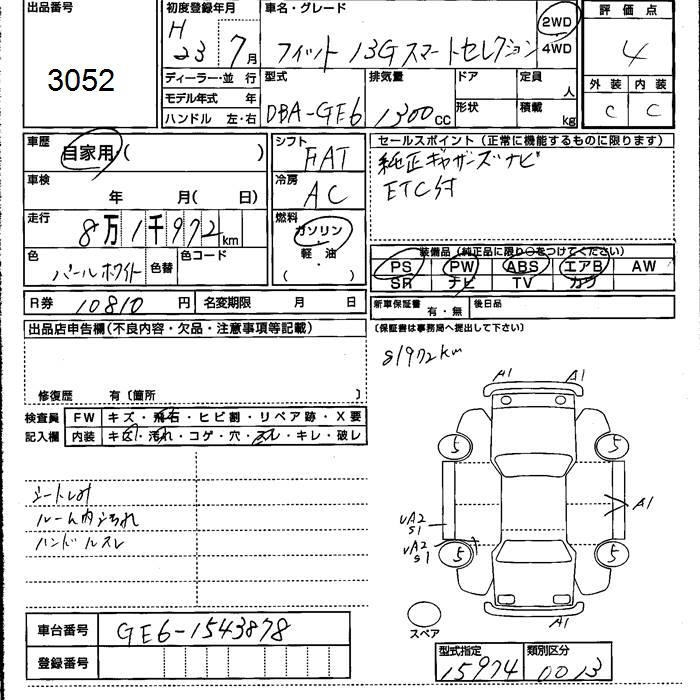 出品番号
3052
初度登録年月
H
23 7月
車名・グレード
フィット 13G スマートセレクション
2WD
4WD
評価点
4
外装 内装
C C
ディーラー・並 行
モデル年式 年
ハンドル 左・右
型式
DBA-GE6
排気量
1300cc
ドア
形状
定員 人
積載 kg
車歴
自家用( )
車検
年 月( 日)
走行
8万1千972km
色
パールホワイト
色替
色コード
シフト
FAT
冷房
AC
燃料
ガソリン
・
軽 油
( )
セールスポイント(正常に機能するものに限ります)
純正ギャザーズナビ
ETC付
装備品(純正品に限り○をつけてください)
PS PW ABS エアB AW
SR ナビ TV カワ
R券 10810円 名変期限 月 日
新車保証書 有・無 後日品
(保証書は事務局へ提出して下さい)
出品店申告欄(不良内容・欠品・注意事項等記載)
修復歴 有〔箇所 〕
81972km
検査員
記入欄
FW キズ・飛石・ヒビ割・リペア跡・X要
内装 キズ・汚れ・コゲ・穴・スレ・キレ・破レ
シートしみ
ルーム内汚れ
ハンドルスレ
A1 A1
5 5
A1
UA2
S1
UA2
S1
5 5
A1
スペア
車台番号 GE6-1543878
登録番号
型式指定 類別区分
15974 0013